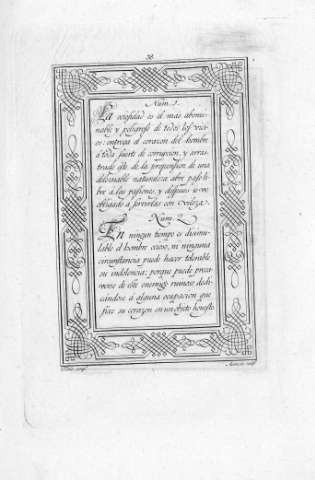 38
Num. 1
La ociosidad es el mas abomi-
nable y peligroso de todos los vici-
os: entrega el corazon del hombre
á toda suerte de corrupcion, y arras-
trado éste de la propension de una
naturaleza abre paso li-
bre á las pasiones, y despues se vee
obligado á servirlas con vileza.
Num. 2
En ningun tiempo es disimu-
lable el hombre ocioso, ni ninguna
circunstancia puede hacer tolerable
su indolencia; porque puede precav-
erse de este enemigo ruinoso dedi-
cándose á alguna ocupacion que
fixe su corazon en un objeto honesto